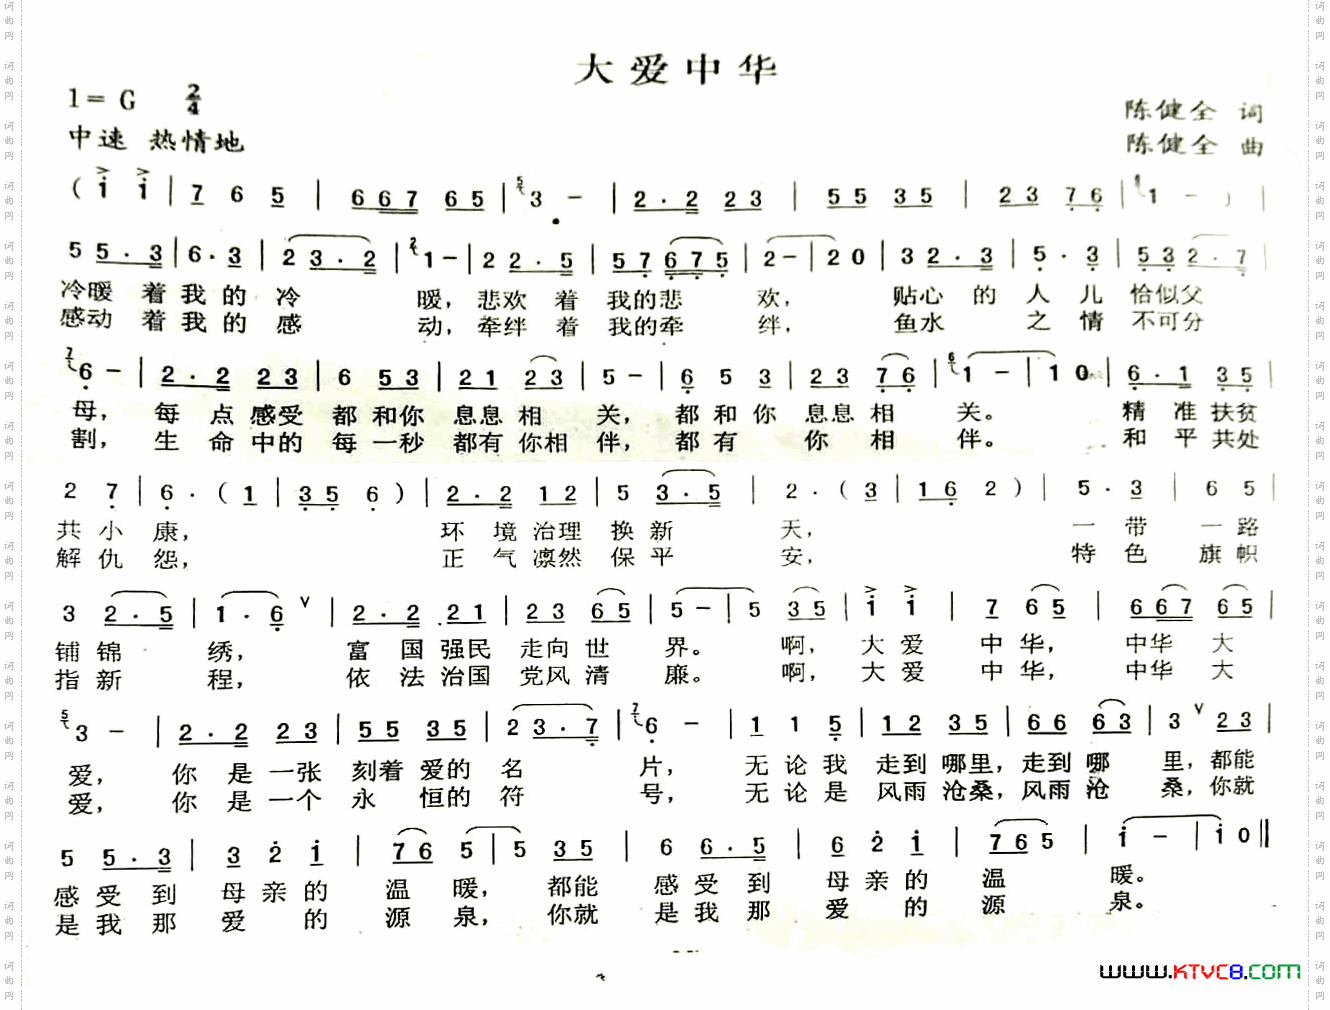 大爱中华
1=G 2/4
陈健全 词
中速 热情地
陈健全 曲
( i i | 7 6 5 | 6 6 7 6 5 | 5 3 - | 2 · 2 2 3 | 5 5 3 5 | 2 3 7 6 | 1 - ) |
5 5 · 3 | 6 · 3 | 2 3 · 2 | 2 1 - | 2 2 · 5 | 5 7 6 7 5 | 2 - | 2 0 | 3 2 · 3 | 5 · 3 | 5 3 2 · 7 |
冷暖 着 我 的 冷 暖, 悲欢 着 我的悲 欢, 贴心 的 人 儿 恰似父
感动 着 我 的 感 动, 牵绊 着 我的牵 绊, 鱼水 之 情 不可分
7 6 - | 2 · 2 2 3 | 6 5 3 | 2 1 2 3 | 5 - | 6 5 3 | 2 3 7 6 | 6 1 - | 1 0 | 6 · 1 3 5 |
母, 每 点 感受 都 和你 息息 相 关, 都 和 你 息息 相 关。 精 准 扶贫
割, 生 命 中的 每 一秒 都有 你相 伴, 都 有 你 相 伴。 和 平 共处
2 7 | 6 · ( 1 | 3 5 6 ) | 2 · 2 1 2 | 5 3 · 5 | 2 · ( 3 | 1 6 2 ) | 5 · 3 | 6 5 |
共 小 康, 环 境 治理 换 新 天, 一 带 一 路
解 仇 怨, 正 气 凛然 保 平 安, 特 色 旗 帜
3 2 · 5 | 1 · 6 ∨ | 2 · 2 2 1 | 2 3 6 5 | 5 - | 5 3 5 | i i | 7 6 5 | 6 6 7 6 5 |
铺 锦 绣, 富 国 强民 走向 世 界。 啊, 大 爱 中 华, 中华 大
指 新 程, 依 法 治国 党风 清 廉。 啊, 大 爱 中 华, 中华 大
5 3 - | 2 · 2 2 3 | 5 5 3 5 | 2 3 · 7 | 7 6 - | 1 1 5 | 1 2 3 5 | 6 6 6 3 | 3 ∨ 2 3 |
爱, 你 是 一张 刻着 爱的 名 片, 无 论 我 走到 哪里, 走到 哪 里, 都能
爱, 你 是 一个 永 恒的 符 号, 无 论 是 风雨 沧桑, 风雨 沧 桑, 你就
5 5 · 3 | 3 2 i | 7 6 5 | 5 3 5 | 6 6 · 5 | 6 2 i | 7 6 5 | i - | i 0 ‖
感 受 到 母 亲 的 温 暖, 都能 感 受 到 母 亲 的 温 暖。
是 我 那 爱 的 源 泉, 你就 是 我 那 爱 的 源 泉。
www.KTVC8.com
词曲网